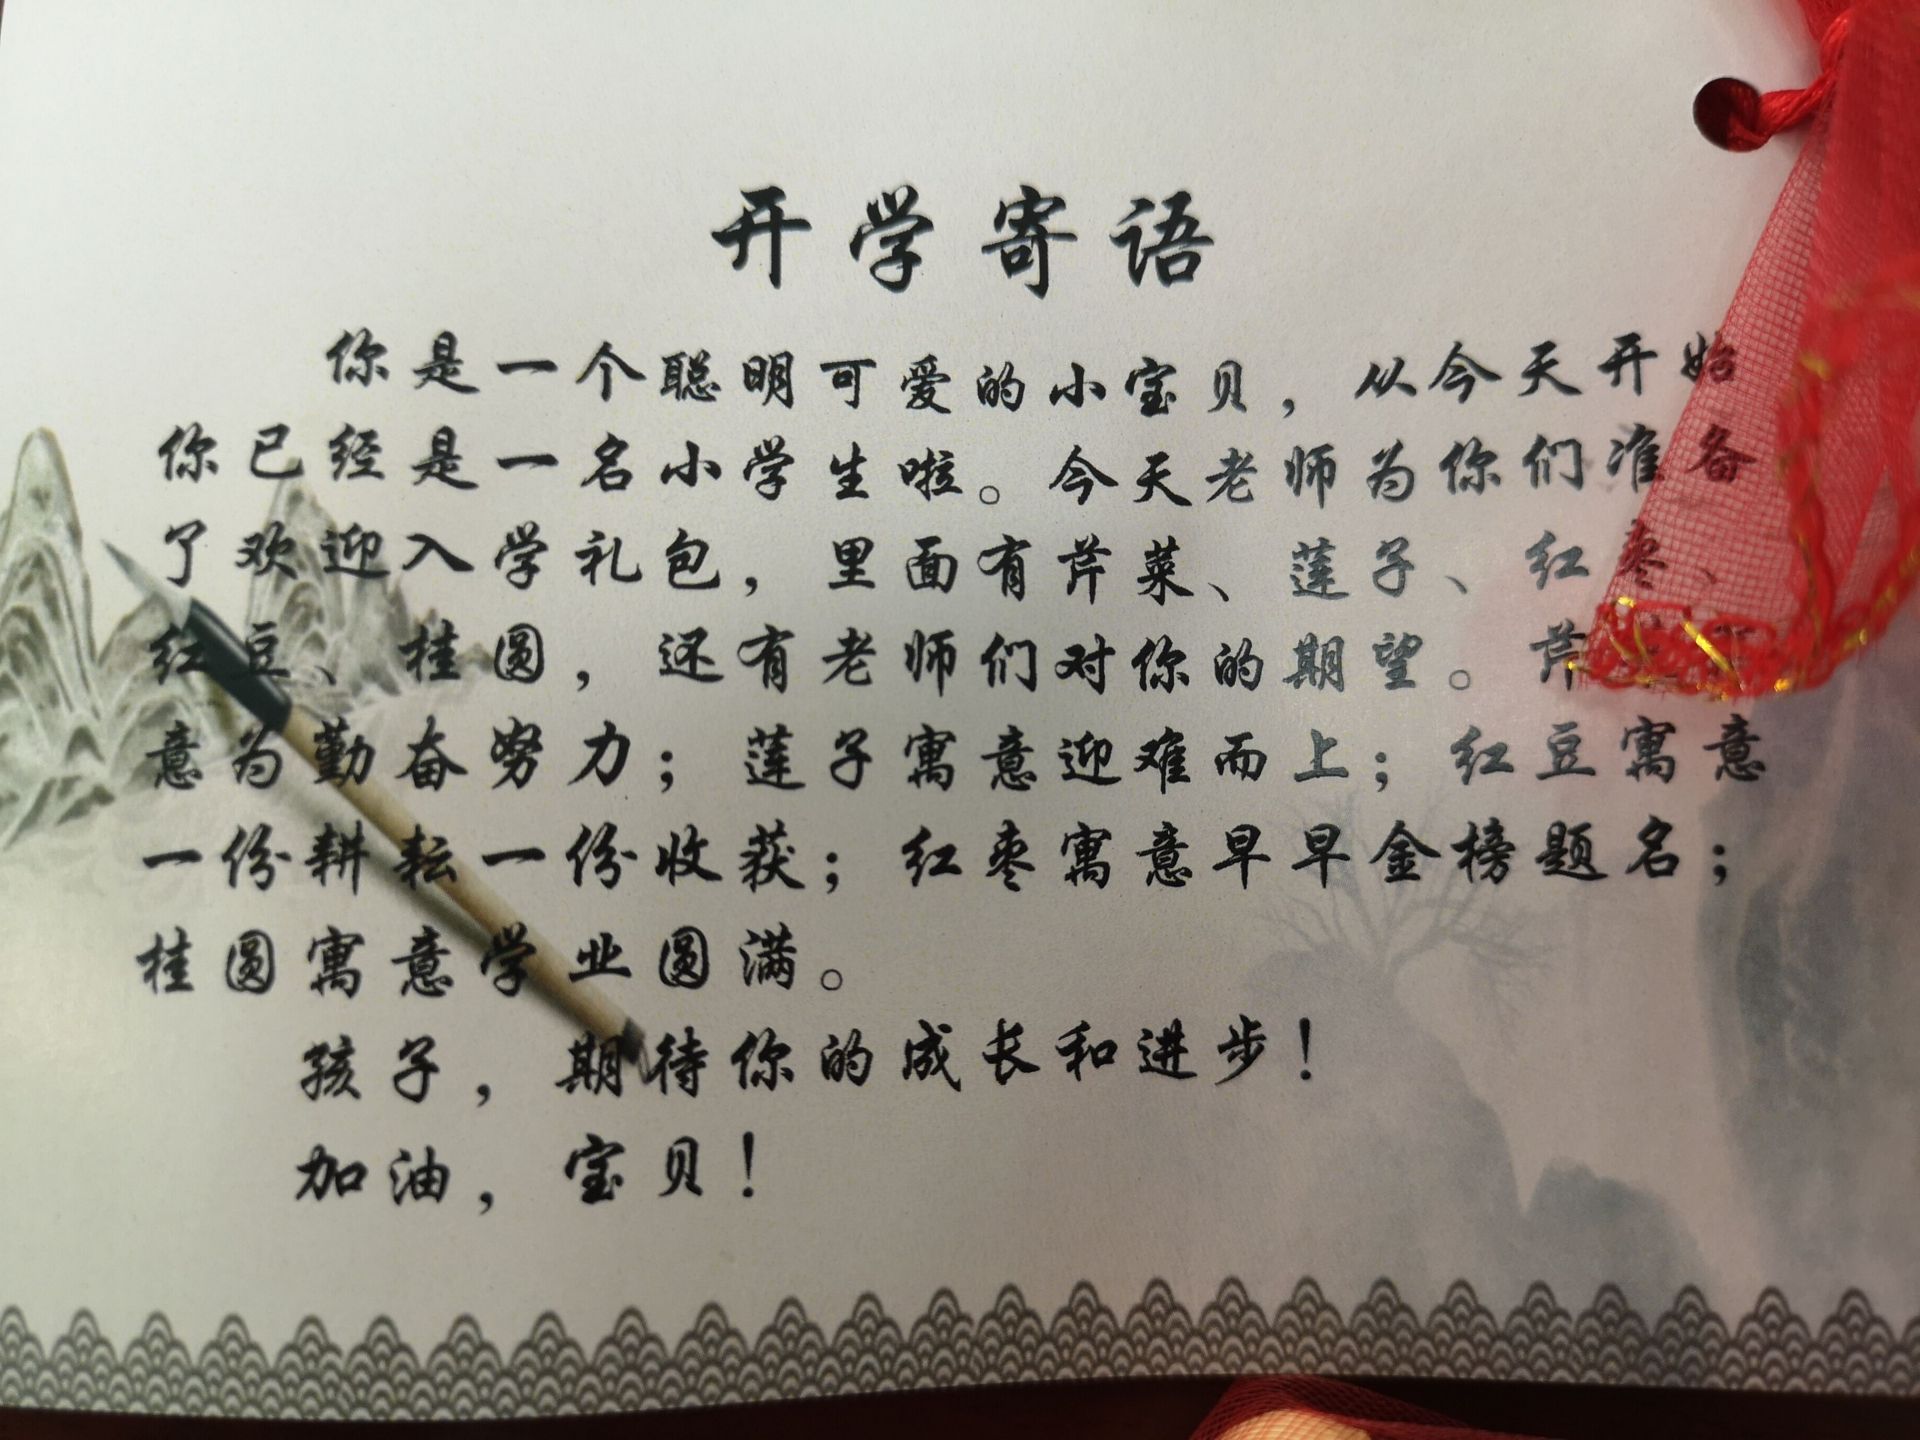 开学寄语
你是一个聪明可爱的小宝贝，从今天开始
你已经是一名小学生啦。今天老师为你们准备
了欢迎入学礼包，里面有芹菜、莲子、红枣、
红豆、桂圆，还有老师们对你的期望。芹
意为勤奋努力；莲子寓意迎难而上；红豆寓意
一份耕耘一份收获；红枣寓意早早金榜题名；
桂圆寓意学业圆满。
孩子，期待你的成长和进步！
加油，宝贝！